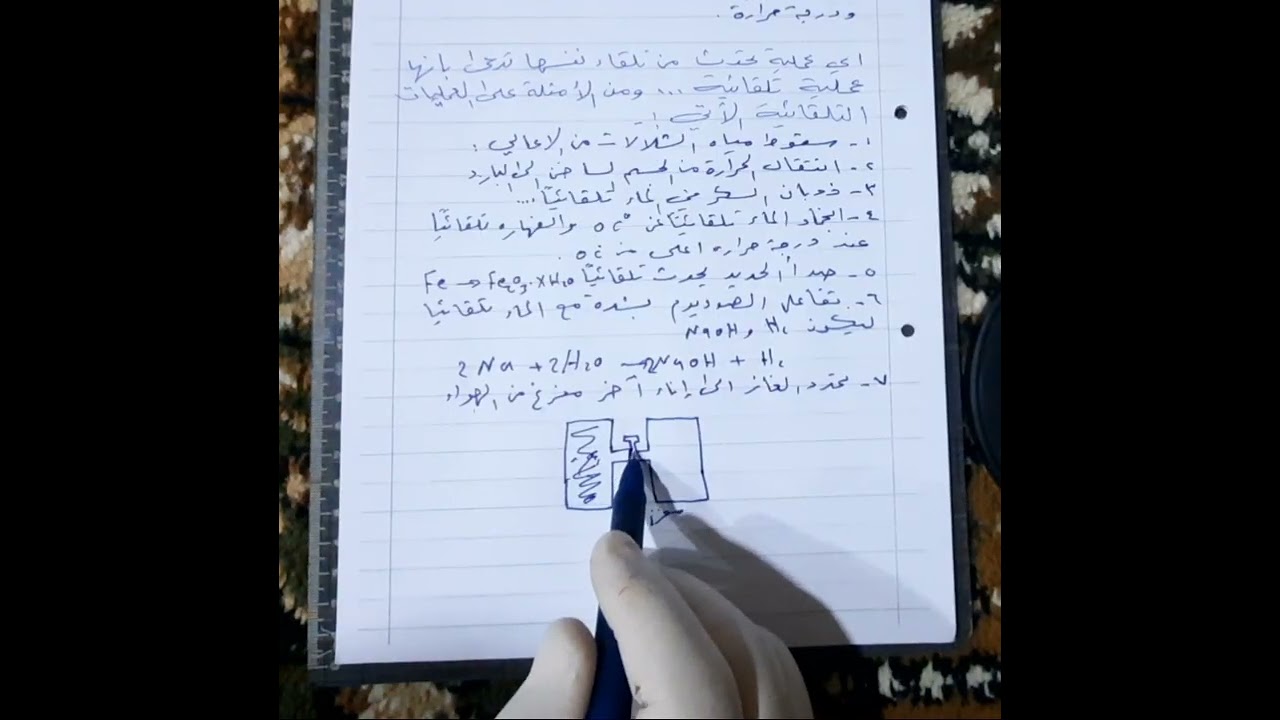 ودرجة حرارة .
اي عملية تحدث من تلقاء نفسها تدعى بانها
عملية تلقائية ... ومن الأمثلة على العمليات
التلقائية الأتي :
١- سقوط مياه الشلالات من الاعالي :
٢- انتقال الحرارة من الجسم الساخن الى البارد
٣- ذوبان السكر في الماء تلقائيًا ....
٤- انجماد الماء تلقائيًا عن 0c° وانصهاره تلقائيًا
عند درجة حراره اعلى من 0c° .
٥- صدأ الحديد يحدث تلقائيًا Fe → Fe2O3.XH2O
٦- تفاعل الصوديوم بشدة مع الماء تلقائيًا
ليكون H2 و NaOH
2Na + 2H2O → 2NaOH + H2
٧- تمدد الغاز الى إناء آخر مفرغ من الهواء